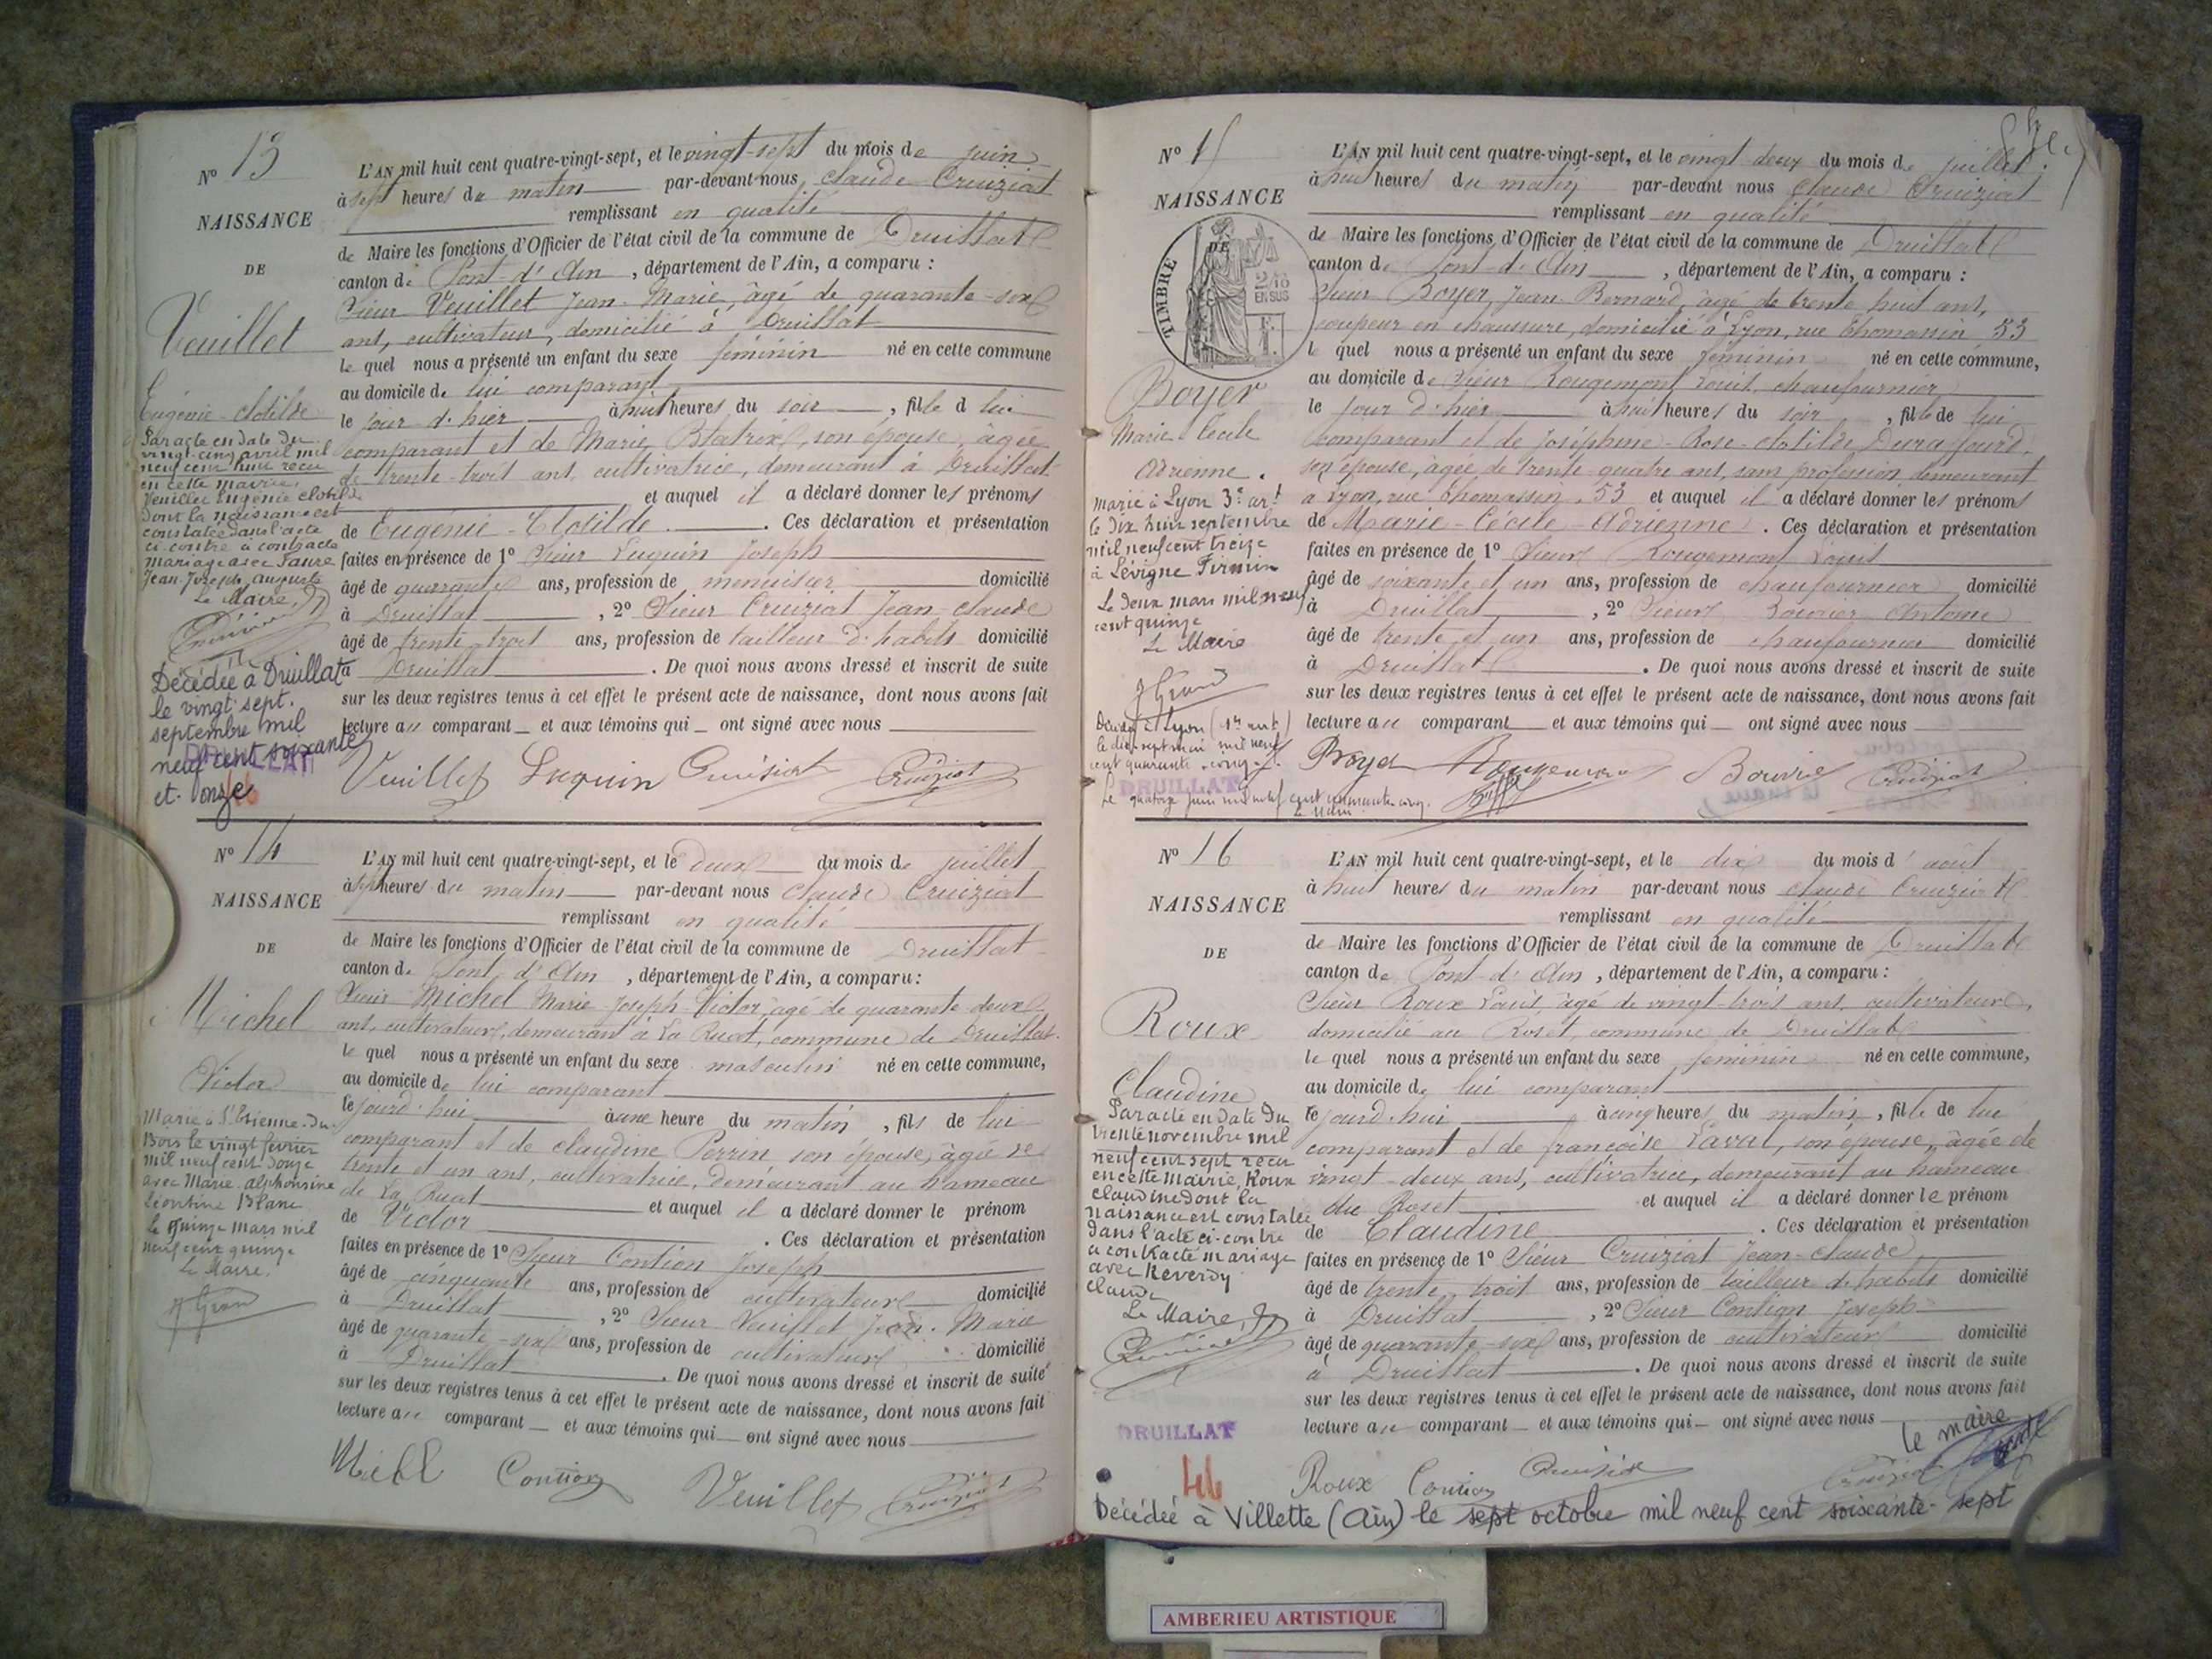 N° 13
NAISSANCE
DE
Veuillet
Eugénie-Clotilde
Par acte en date du
vingt-cinq avril mil
neuf cent huit reçu
en cette mairie,
Veuillet Eugénie Clotilde
dont la naissance est
constatée dans l'acte
ci-contre a contracté
mariage avec Favre
Jean Joseph Auguste
Le Maire,
Décédée à Druillat
le vingt sept.
septembre mil
neuf cent soixante
et onze
DRUILLAT
46
L'AN mil huit cent quatre-vingt-sept, et le vingt-sept du mois de juin
à sept heures du matin par-devant nous, Claude Cruiziat
remplissant en qualité
de Maire les fonctions d'Officier de l'état civil de la commune de Druillat
canton de Pont-d'Ain, département de l'Ain, a comparu :
Sieur Veuillet Jean-Marie, âgé de quarante-six
ans, cultivateur, domicilié à Druillat
lequel nous a présenté un enfant du sexe féminin né en cette commune
au domicile de lui comparant
le jour d'hier à huit heures du soir, fille d lui
comparant et de Marie Béatrix, son épouse, âgée
de trente-trois ans, cultivatrice, demeurant à Druillat
et auquel il a déclaré donner les prénoms
de Eugénie-Clotilde. Ces déclaration et présentation
faites en présence de 1° Sieur Luquin Joseph
âgé de quarante ans, profession de menuisier domicilié
à Druillat, 2° Sieur Cruiziat Jean-Claude
âgé de trente-trois ans, profession de tailleur d'habits domicilié
à Druillat. De quoi nous avons dressé et inscrit de suite
sur les deux registres tenus à cet effet le présent acte de naissance, dont nous avons fait
lecture au comparant et aux témoins qui ont signé avec nous
Veuillet Luquin Cruisiat Cruiziat
N° 14
NAISSANCE
DE
Michel
Victor
Marié à St Etienne-du-
Bois le vingt février
mil neuf cent douze
avec Marie-Alphonsine
Léontine Blanc
Le quinze mars mil
neuf cent quinze
Le Maire.
L'AN mil huit cent quatre-vingt-sept, et le deux du mois de juillet
à sept heures du matin par-devant nous Claude Cruiziat
remplissant en qualité
de Maire les fonctions d'Officier de l'état civil de la commune de Druillat
canton de Pont-d'Ain, département de l'Ain, a comparu :
Sieur Michel Marie-Joseph-Victor, âgé de quarante deux
ans, cultivateur, demeurant à La Ruat, commune de Druillat
lequel nous a présenté un enfant du sexe masculin né en cette commune,
au domicile de lui comparant
le jourd'hui à une heure du matin, fils de lui
comparant et de Claudine Perrin son épouse, âgée de
trente et un ans, cultivatrice, demeurant au hameau
de La Ruat et auquel il a déclaré donner le prénom
de Victor. Ces déclaration et présentation
faites en présence de 1° Sieur Contion Joseph
âgé de cinquante ans, profession de cultivateur domicilié
à Druillat, 2° Sieur Veuillet Jean-Marie
âgé de quarante-six ans, profession de cultivateur domicilié
à Druillat. De quoi nous avons dressé et inscrit de suite
sur les deux registres tenus à cet effet le présent acte de naissance, dont nous avons fait
lecture au comparant et aux témoins qui ont signé avec nous
Contion Veuillet Cruiziat
N° 15
NAISSANCE
TIMBRE DE
2/10
EN SUS
Boyer
Marie-Cécile
Adrienne.
marié à Lyon 3e art
le dix huit septembre
mil neuf cent treize
à Lévigne Firmin
Le deux mars mil neuf
cent quinze
Le Maire
DRUILLAT
L'AN mil huit cent quatre-vingt-sept, et le vingt deux du mois de juillet
à huit heures du matin par-devant nous Claude Cruiziat
remplissant en qualité
de Maire les fonctions d'Officier de l'état civil de la commune de Druillat
canton de Pont-d'Ain, département de l'Ain, a comparu :
Sieur Boyer, Jean-Bernard, âgé de trente huit ans,
coupeur en chaussure, domicilié à Lyon, rue Thomassin 53
lequel nous a présenté un enfant du sexe féminin né en cette commune,
au domicile de Sieur Rougemont Louis, chaufournier
le jour d'hier à huit heures du soir, fille de lui
comparant et de Joséphine-Rose-Clotilde Durafourd,
son épouse, âgée de trente quatre ans, sans profession, demeurant
à Lyon, rue Thomassin, 53 et auquel il a déclaré donner les prénoms
de Marie-Cécile-Adrienne. Ces déclaration et présentation
faites en présence de 1° Sieur Rougemont Louis
âgé de soixante et un ans, profession de chaufournier domicilié
à Druillat, 2° Sieur Bouvier Antoine
âgé de trente et un ans, profession de chaufournier domicilié
à Druillat. De quoi nous avons dressé et inscrit de suite
sur les deux registres tenus à cet effet le présent acte de naissance, dont nous avons fait
lecture au comparant et aux témoins qui ont signé avec nous
Boyer Rougemont Bouvier Cruiziat
N° 16
NAISSANCE
DE
Roux
Claudine
Par acte en date du
trente novembre mil
neuf cent sept reçu
en cette mairie, Roux
Claudine dont la
naissance est constatée
dans l'acte ci-contre
a contracté mariage
avec Reverdy
Claude
Le Maire,
DRUILLAT
46
L'AN mil huit cent quatre-vingt-sept, et le dix du mois d'août
à huit heures du matin par-devant nous Claude Cruiziat
remplissant en qualité
de Maire les fonctions d'Officier de l'état civil de la commune de Druillat
canton de Pont-d'Ain, département de l'Ain, a comparu :
Sieur Roux Louis, âgé de vingt-trois ans, cultivateur,
domicilié au Roset, commune de Druillat
lequel nous a présenté un enfant du sexe féminin né en cette commune,
au domicile de lui comparant
le jourd'hui à cinq heures du matin, fille de lui
comparant et de Françoise Laval, son épouse, âgée de
vingt-deux ans, cultivatrice, demeurant au hameau
du Roset et auquel il a déclaré donner le prénom
de Claudine. Ces déclaration et présentation
faites en présence de 1° Sieur Cruiziat Jean-Claude
âgé de trente trois ans, profession de tailleur d'habits domicilié
à Druillat, 2° Sieur Contion Joseph
âgé de quarante-six ans, profession de cultivateur domicilié
à Druillat. De quoi nous avons dressé et inscrit de suite
sur les deux registres tenus à cet effet le présent acte de naissance, dont nous avons fait
lecture au comparant et aux témoins qui ont signé avec nous
Le maire
Roux Contion Cruisiat Cruiziat
Décédée à Villette (Ain) le sept octobre mil neuf cent soixante-sept
AMBERIEU ARTISTIQUE